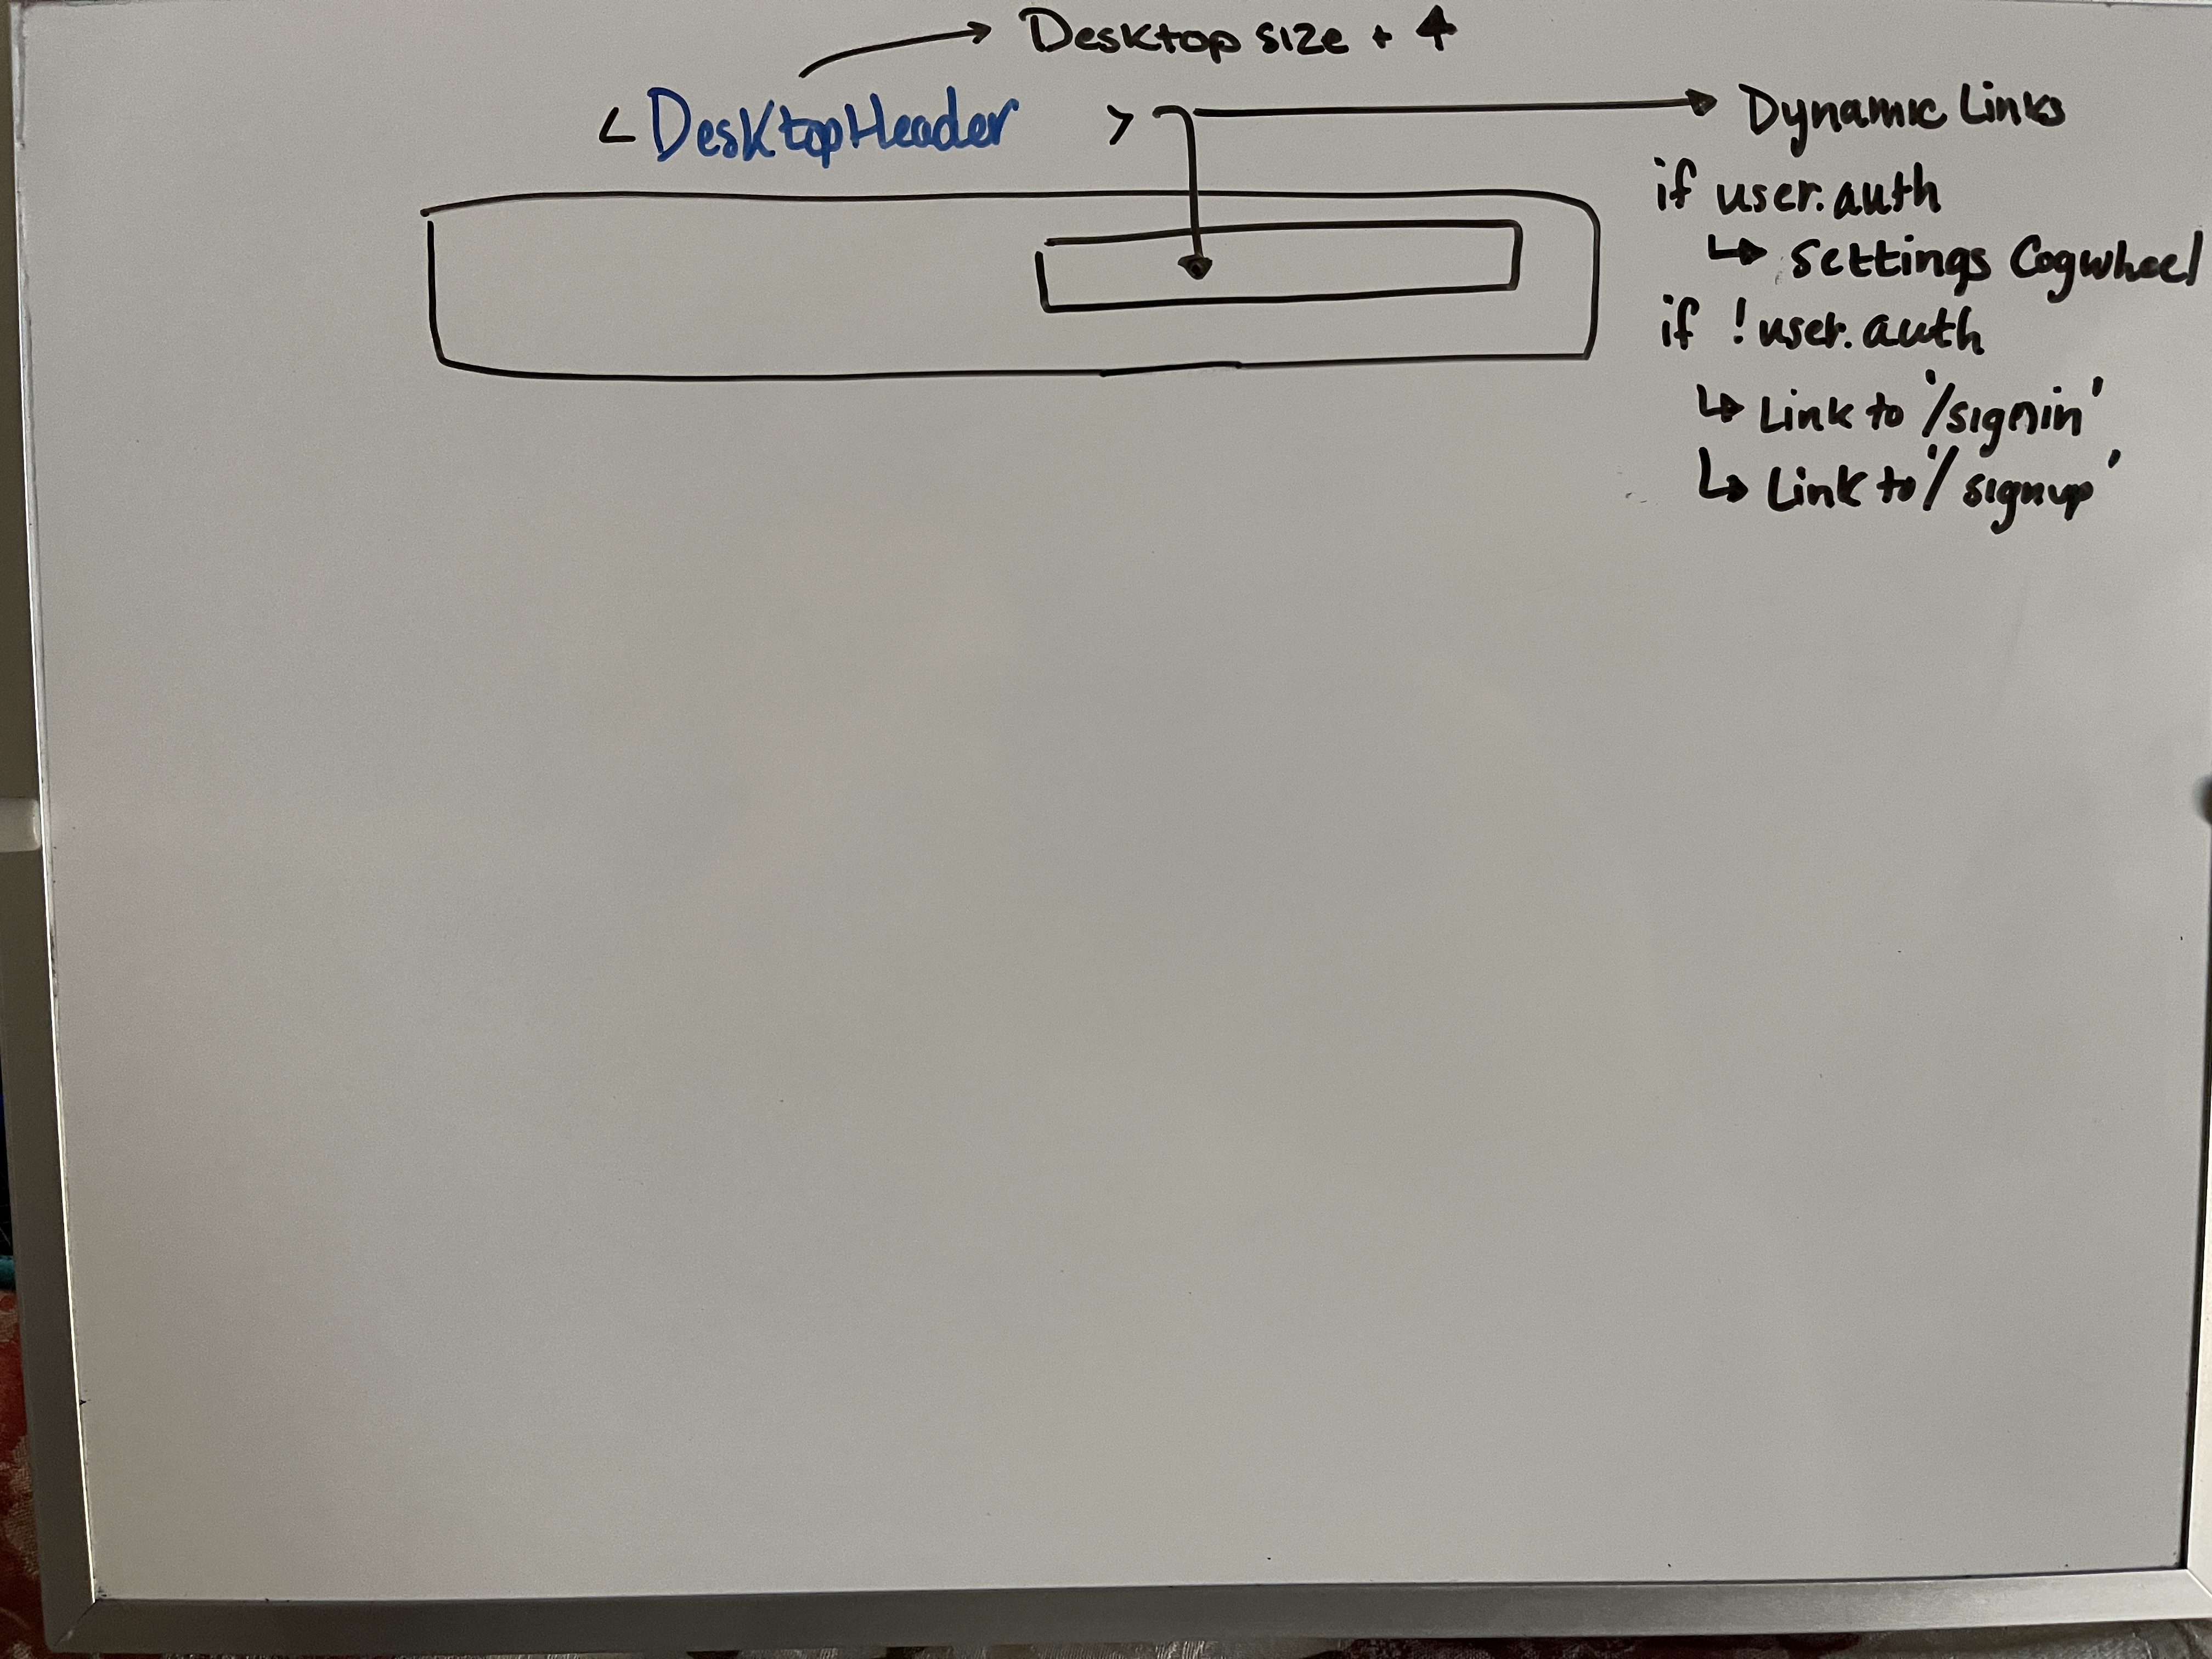 Desktop size + ↑
< DesktopHeader >
Dynamic Links
if user.auth
↳ Settings Cogwheel
if !user.auth
↳ Link to '/signin'
↳ Link to '/signup'